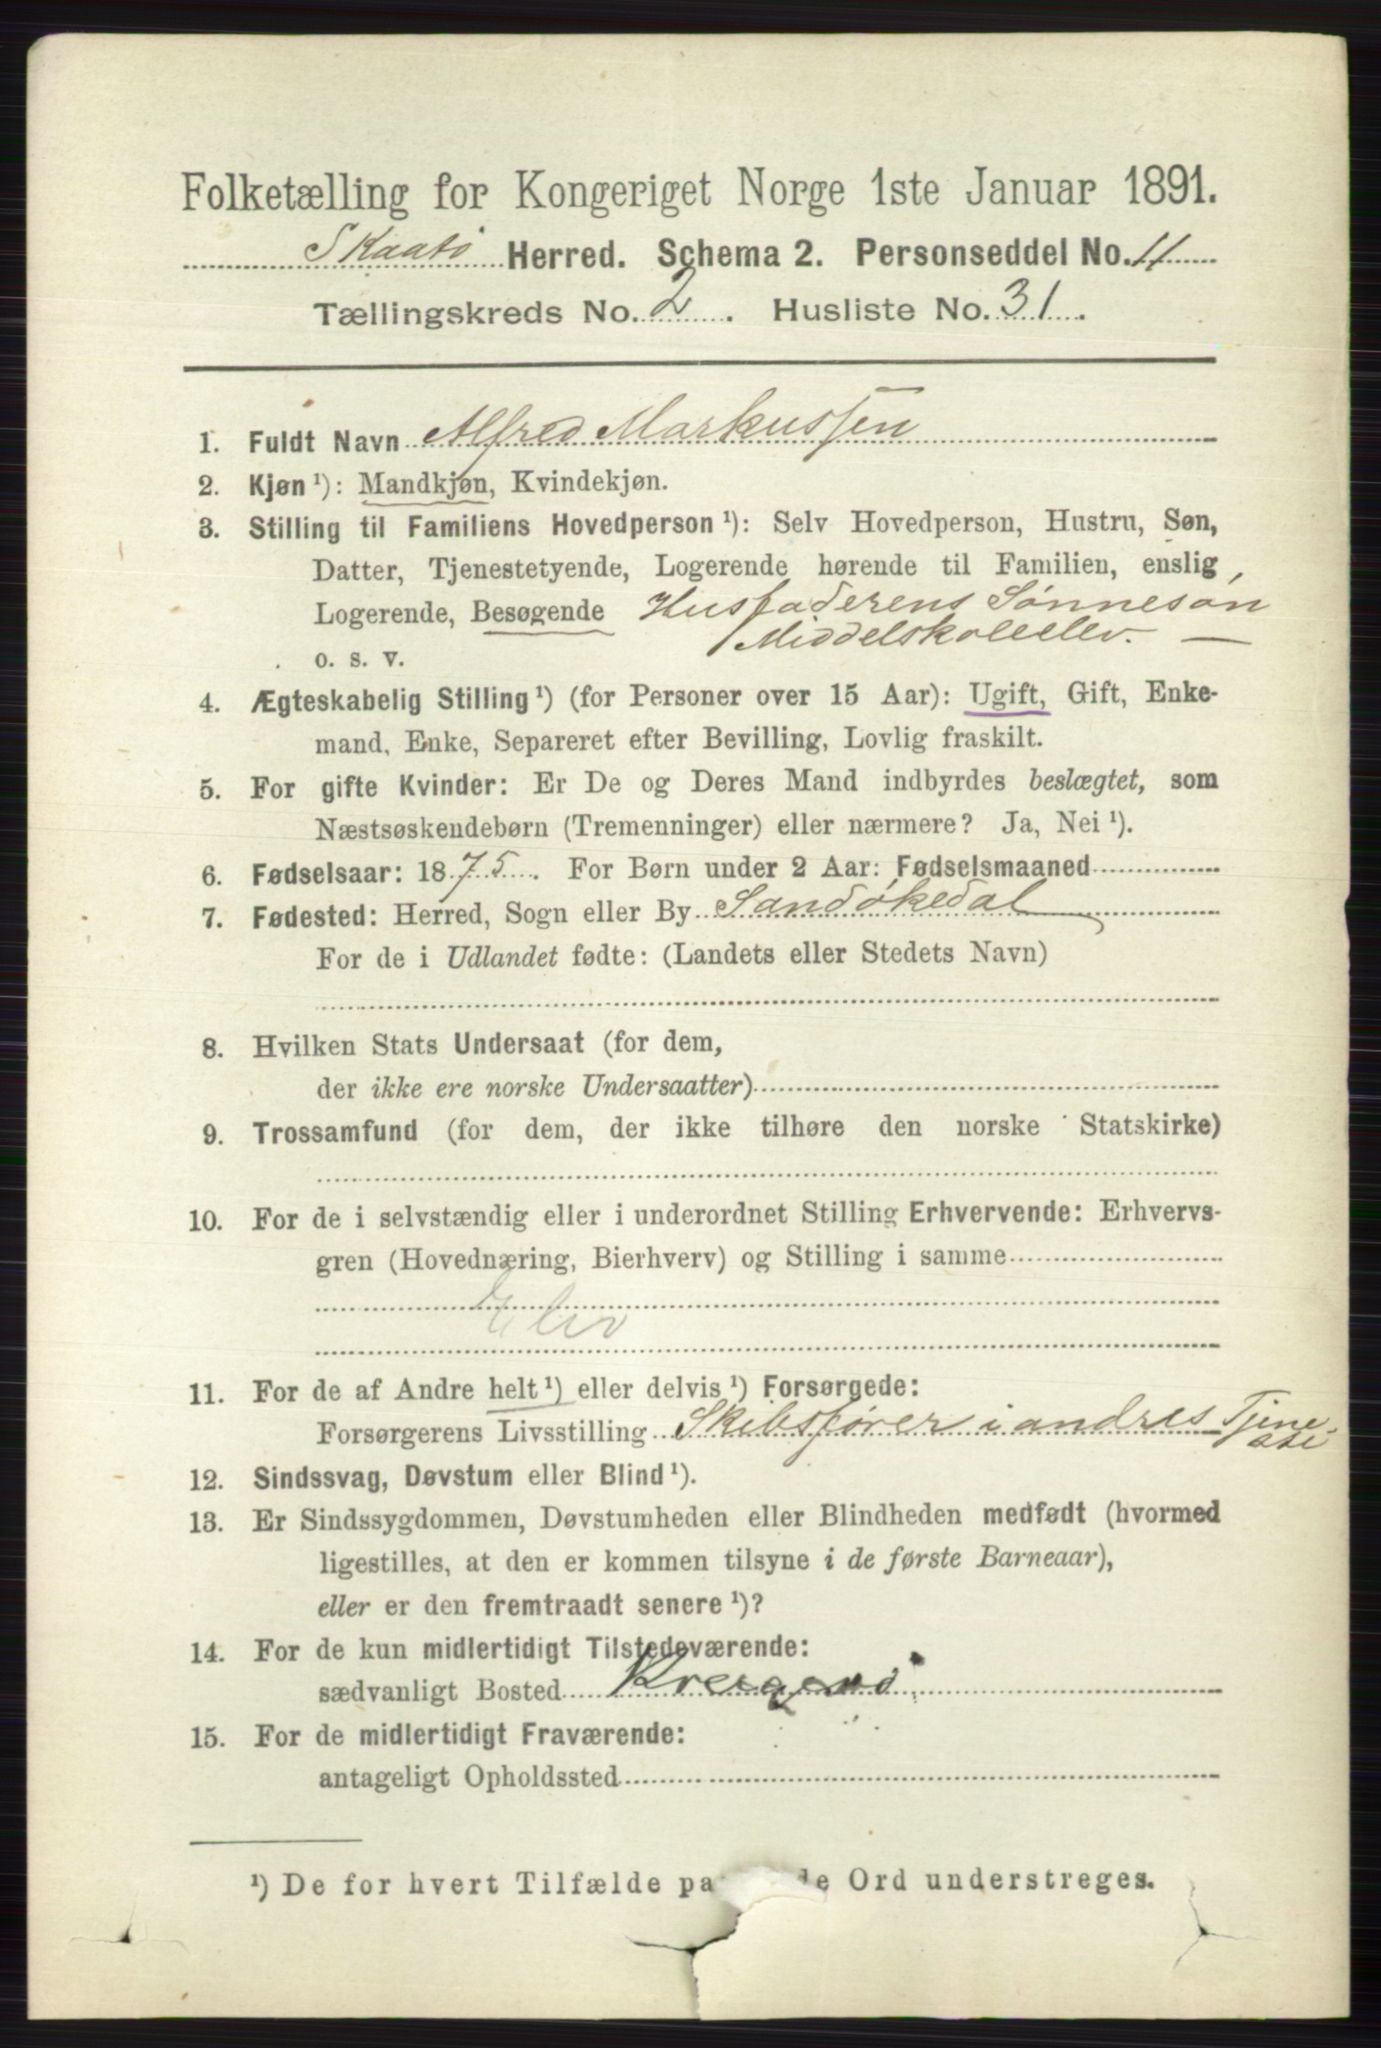 Folketælling for Kongeriget Norge 1ste Januar 1891.
Skaatø Herred. Schema 2. Personseddel No. 11
Tællingskreds No. 2. Husliste No. 31.
1. Fuldt Navn Alfred Markussen
2. Kjøn ¹): Mandkjøn, Kvindekjøn.
3. Stilling til Familiens Hovedperson ¹): Selv Hovedperson, Hustru, Søn,
Datter, Tjenestetyende, Logerende hørende til Familien, enslig
Logerende, Besøgende Husfaderens Sønnesøn,
Middelskoleelev. —
o. s. v.
4. Ægteskabelig Stilling ¹) (for Personer over 15 Aar): Ugift, Gift, Enke-
mand, Enke, Separeret efter Bevilling, Lovlig fraskilt.
5. For gifte Kvinder: Er De og Deres Mand indbyrdes beslægtet, som
Næstsøskendebørn (Tremenninger) eller nærmere? Ja, Nei ¹).
6. Fødselsaar: 1875. For Børn under 2 Aar: Fødselsmaaned
7. Fødested: Herred, Sogn eller By Sandøkedal
For de i Udlandet fødte: (Landets eller Stedets Navn)
8. Hvilken Stats Undersaat (for dem,
der ikke ere norske Undersaatter)
9. Trossamfund (for dem, der ikke tilhøre den norske Statskirke)
10. For de i selvstændig eller i underordnet Stilling Erhvervende: Erhvervs-
gren (Hovednæring, Bierhverv) og Stilling i samme
Elev
11. For de af Andre helt ¹) eller delvis ¹) Forsørgede:
Forsørgerens Livsstilling Skibsfører i andres Tjene-
ste
12. Sindssvag, Døvstum eller Blind ¹).
13. Er Sindssygdommen, Døvstumheden eller Blindheden medfødt (hvormed
ligestilles, at den er kommen tilsyne i de første Barneaar),
eller er den fremtraadt senere ¹)?
14. For de kun midlertidigt Tilstedeværende:
sædvanligt Bosted
15. For de midlertidigt Fraværende:
antageligt Opholdssted
¹) De for hvert Tilfælde pa de Ord understreges.